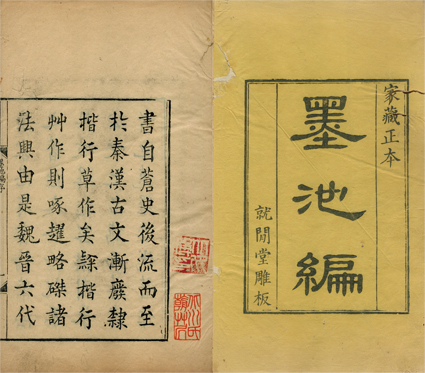 家藏正本
墨池編
就閒堂雕板
書自蒼史後流而至
於秦漢古文漸廢隸
楷行草作矣隸楷行
艸作則啄趯略磔諸
法興由是魏晉六代